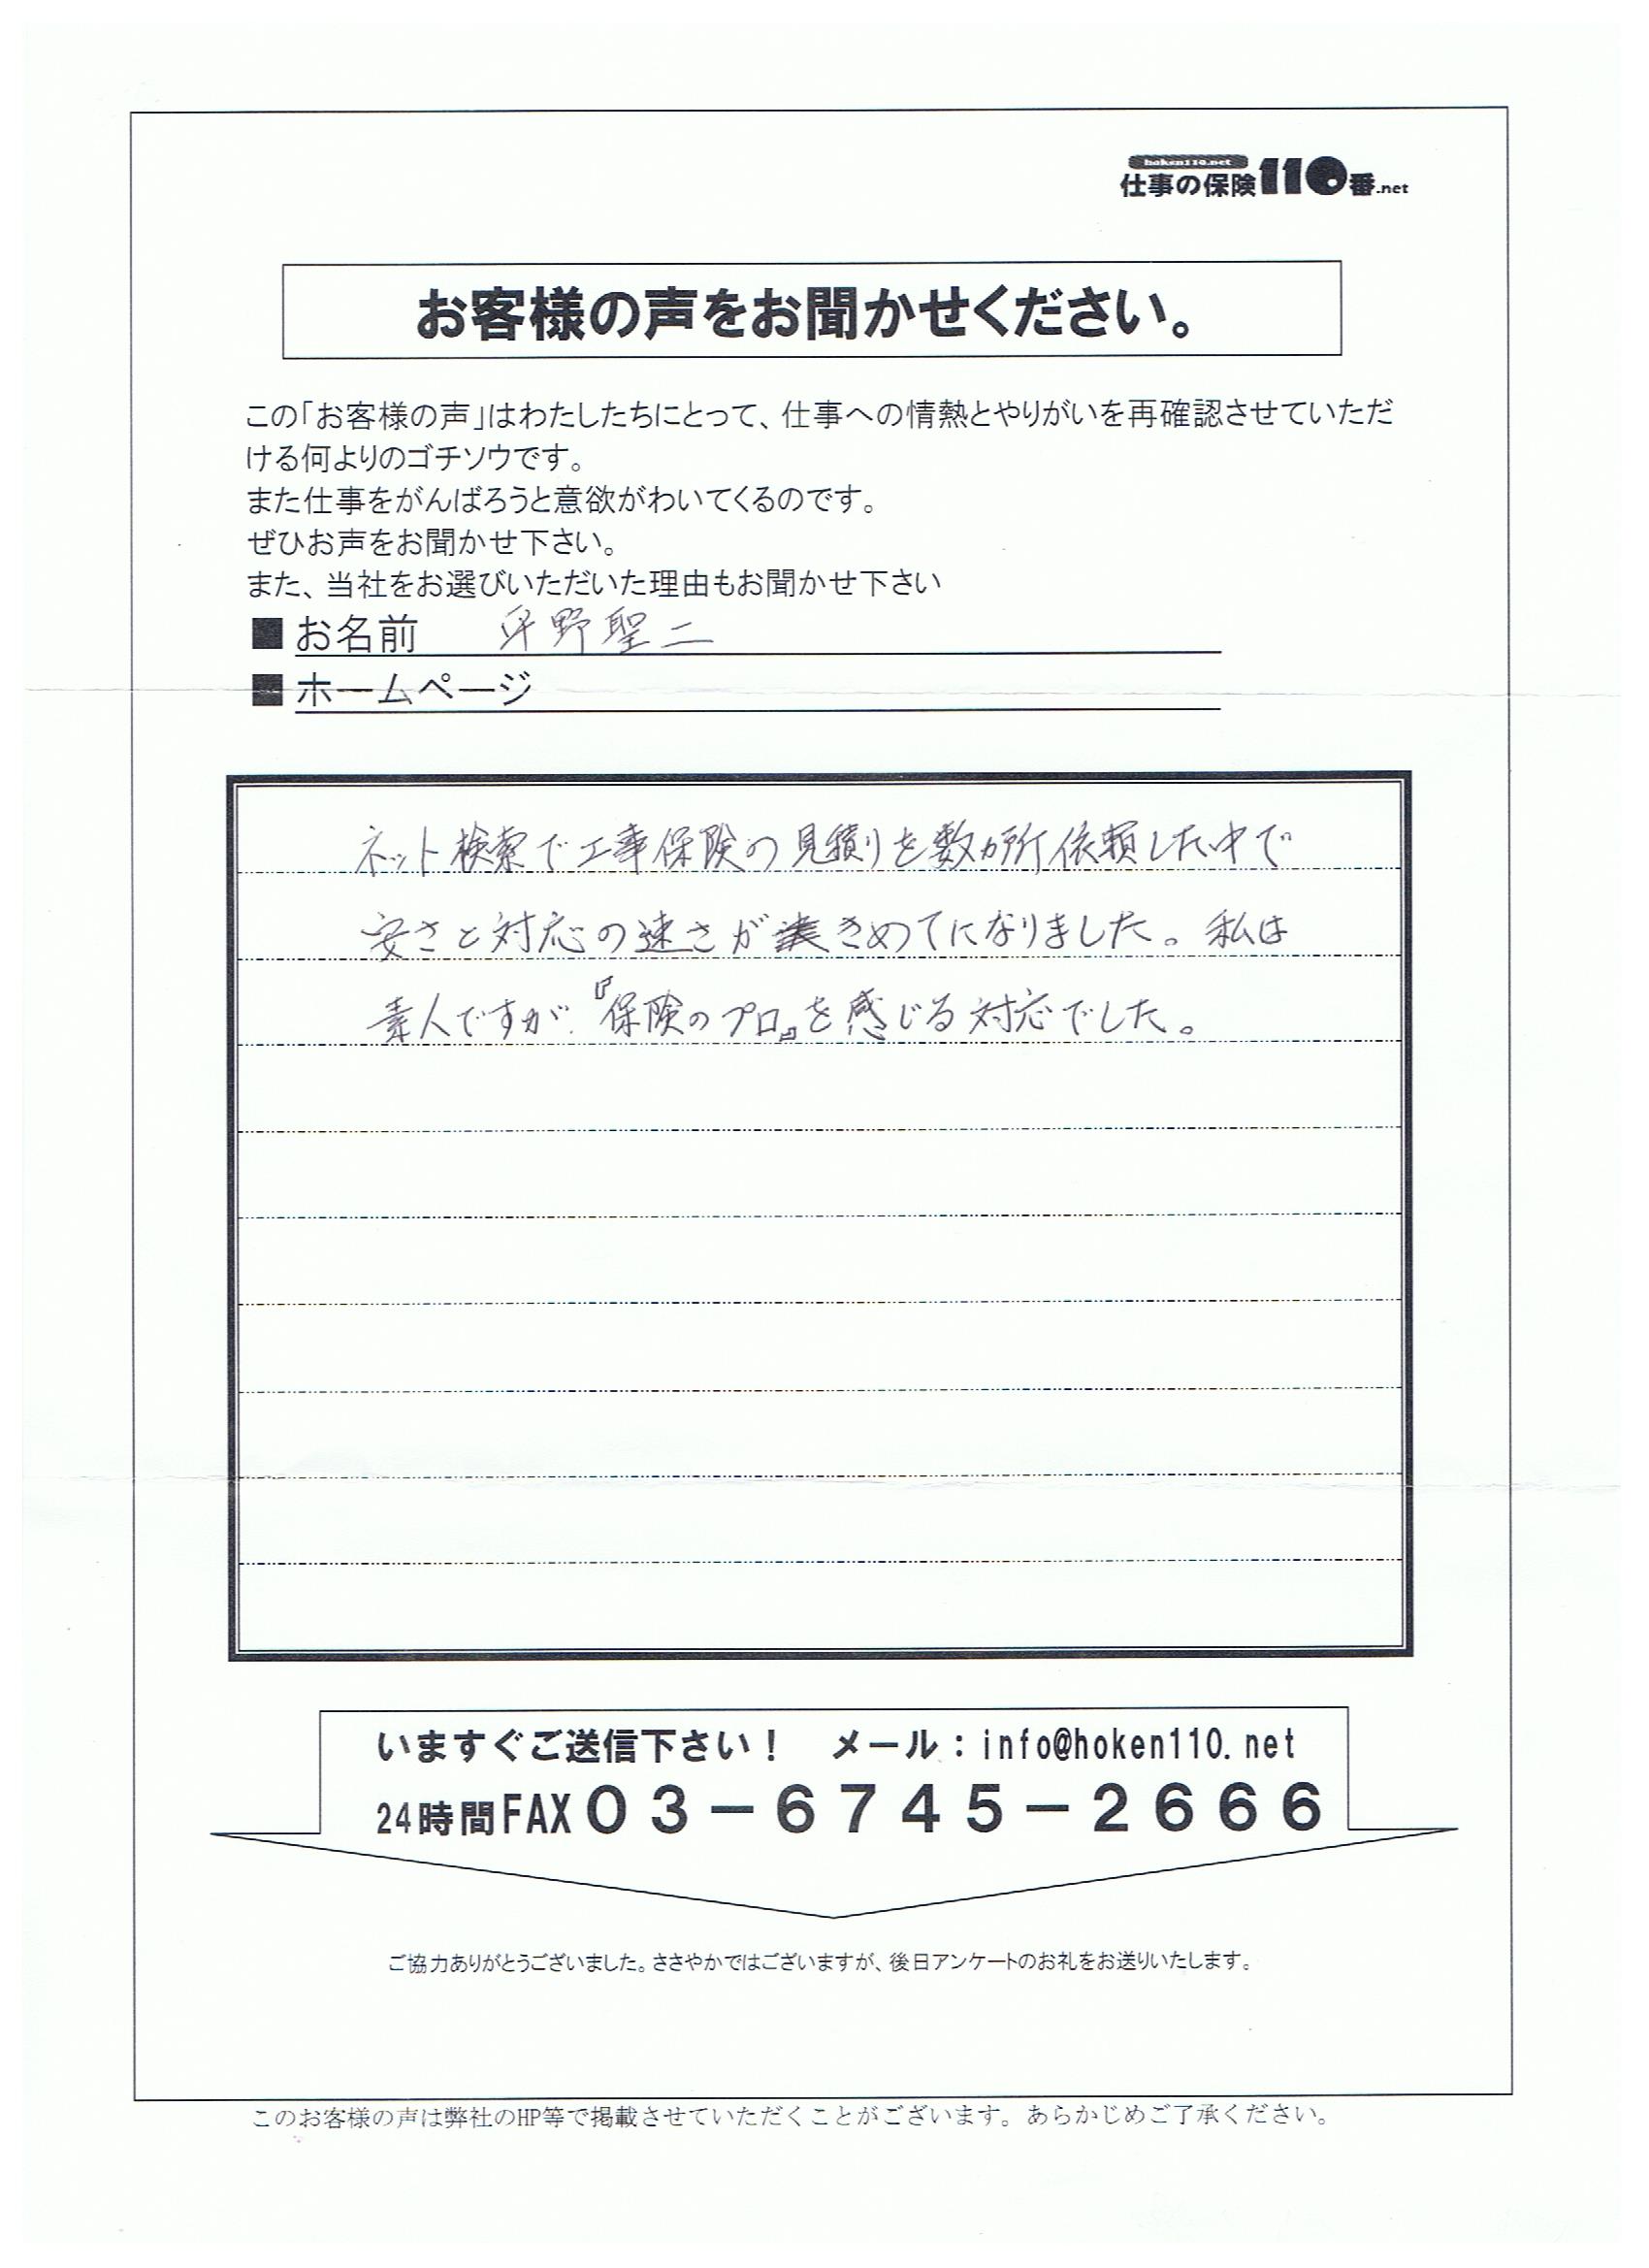 hoken110.net
仕事の保険110番.net
お客様の声をお聞かせください。
この「お客様の声」はわたしたちにとって、仕事への情熱とやりがいを再確認させていただ
ける何よりのゴチソウです。
また仕事をがんばろうと意欲がわいてくるのです。
ぜひお声をお聞かせ下さい。
また、当社をお選びいただいた理由もお聞かせ下さい
■お名前 平野聖二
■ホームページ
ネット検索で工事保険の見積りを数カ所依頼した中で
安さと対応の速さがきめてになりました。私は
素人ですが、『保険のプロ』を感じる対応でした。
いますぐご送信下さい! メール:info@hoken110.net
24時間FAX03-6745-2666
ご協力ありがとうございました。ささやかではございますが、後日アンケートのお礼をお送りいたします。
このお客様の声は弊社のHP等で掲載させていただくことがございます。あらかじめご了承ください。